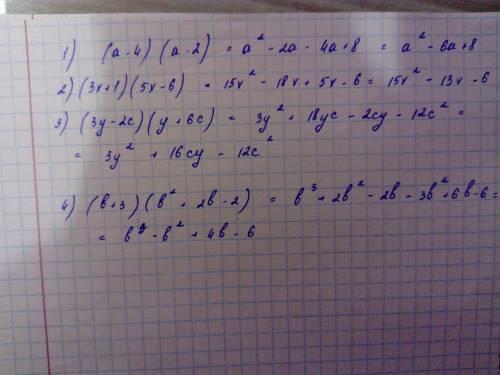 1) (a-4)(a-2) = a² - 2a - 4a + 8 = a² - 6a + 8
2) (3x+1)(5x-6) = 15x² - 18x + 5x - 6 = 15x² - 13x - 6
3) (3y-2c)(y+6c) = 3y² + 18yc - 2cy - 12c² =
= 3y² + 16cy - 12c²
4) (b+3)(b² + 2b - 2) = b³ + 2b² - 2b - 3b² + 6b - 6 =
= b³ - b² + 4b - 6